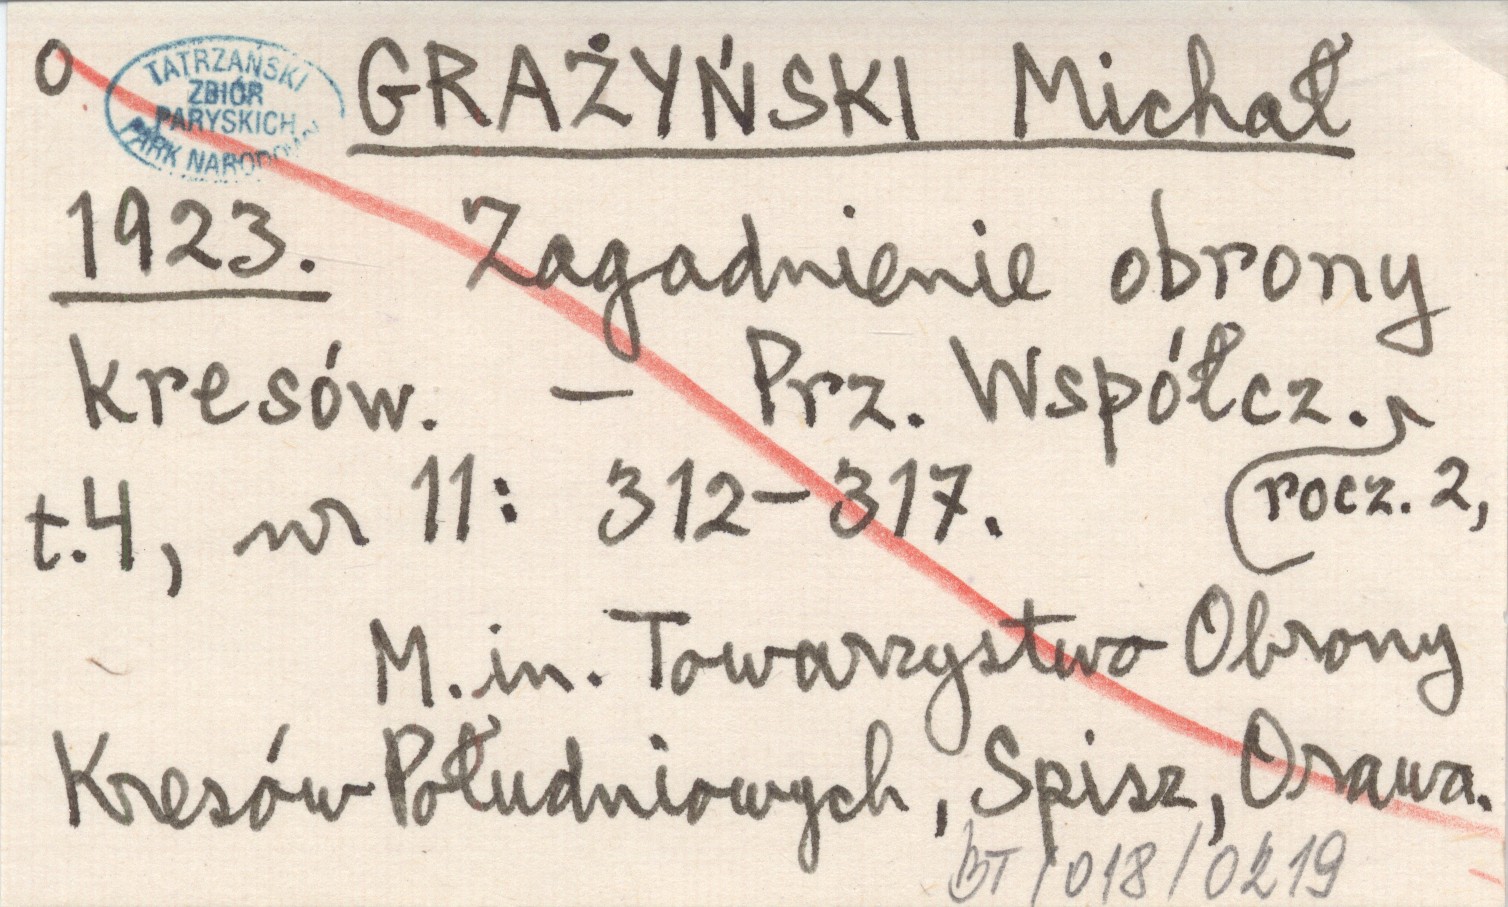 O
TATRZAŃSKI
ZBIÓR
PARYSKICH
PARK NARODOWY
GRAŻYŃSKI Michał
1923. Zagadnienie obrony
kresów. — Prz. Współcz.
rocz. 2,
t.4, nr 11: 312–317.
M.in. Towarzystwo Obrony
Kresów Południowych, Spisz, Orawa.
BT/018/0219